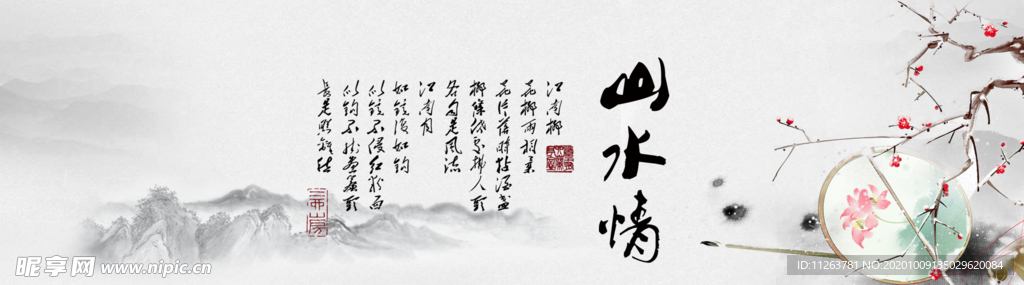 山水情
江南柳
花柳两相柔
花片落时黏酒盏
柳条低处拂人头
各自是风流
江南月
如镜复如钩
似镜不侵红粉面
似钩不挂画帘头
长是照离愁
昵享网 www.nipic.cn
ID:11263781 NO:20201009135029620084